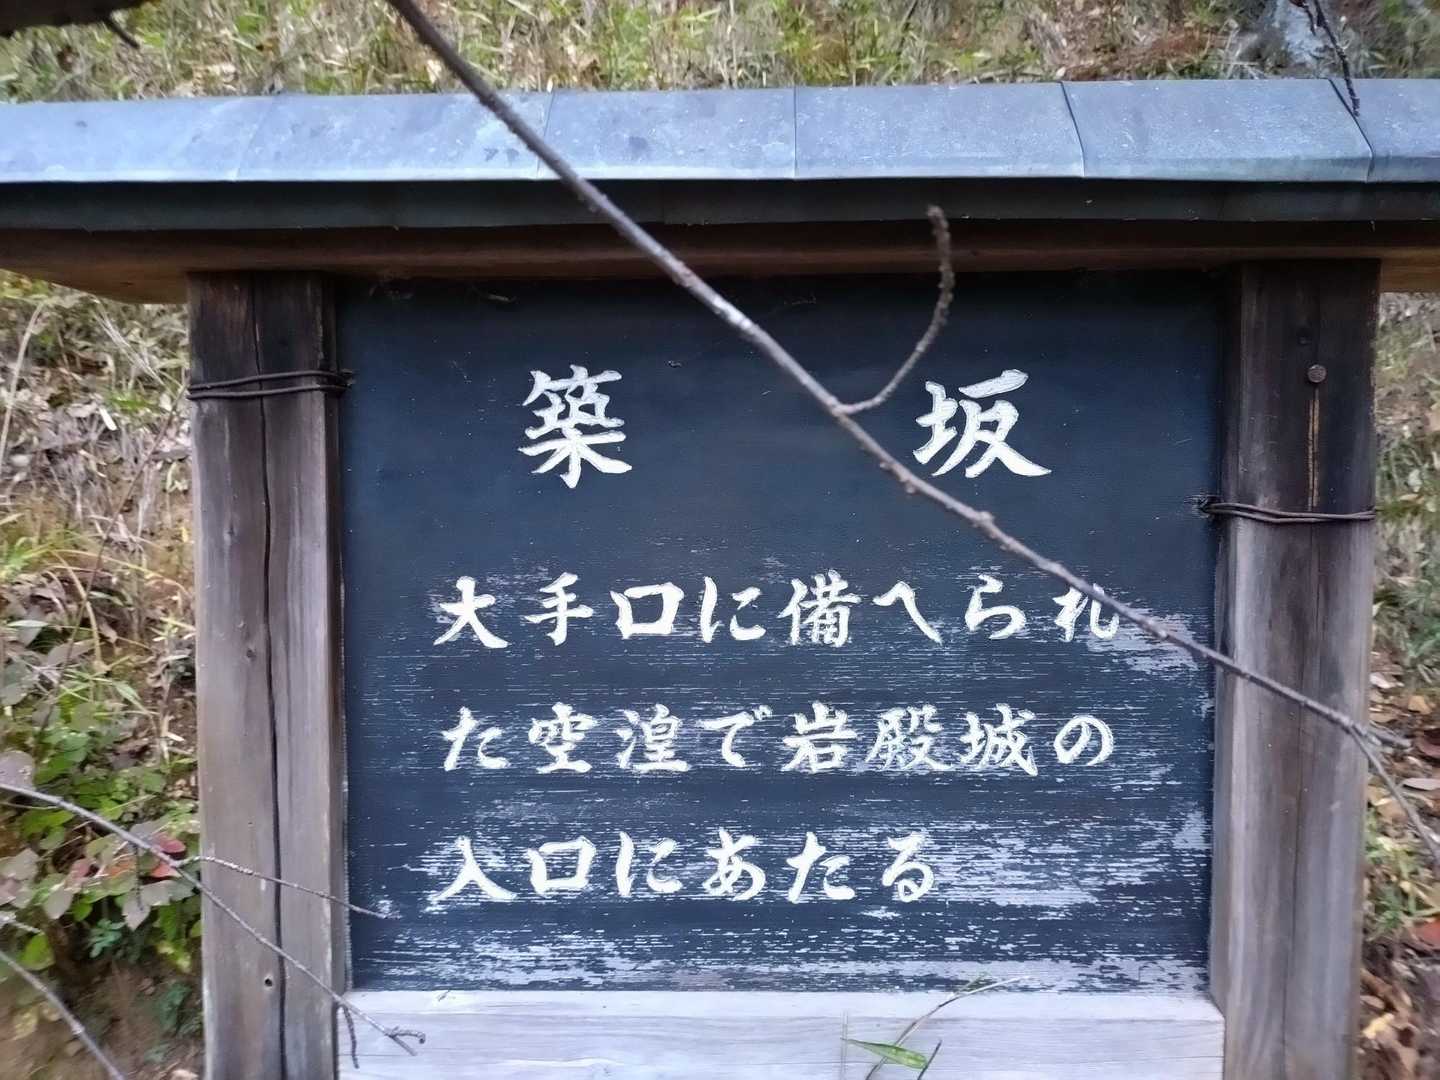 築 坂
大手口に備へられ
た空湟で岩殿城の
入口にあたる